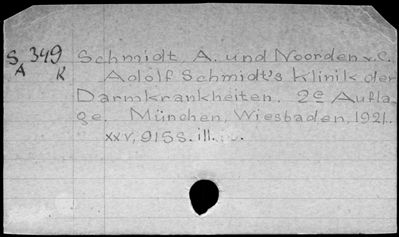 S 349 Schmidt, A. und Noorden v. C.
A K Adolf Schmidt's Klinik der
Darmkrankheiten. 2e Aufla-
ge. München, Wiesbaden, 1921.
xxv, 915 S. ill.